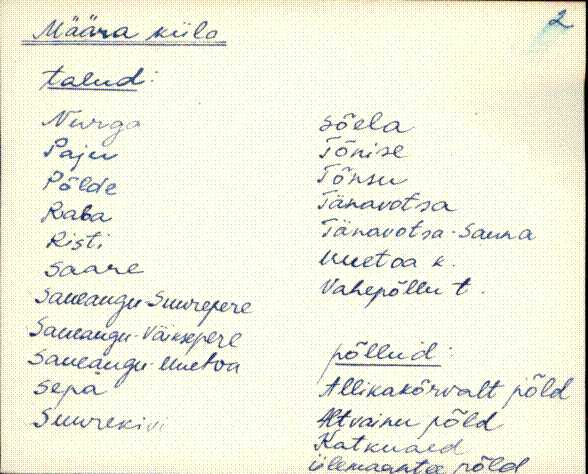 2
Määra küla
talud:
Nurga
Paju
Põlde
Raba
Risti
Saare
Saueaugu-Suurepere
Saueaugu-Väiksepere
Saueaugu-Uuetoa
Sepa
Suurekivi
Sõela
Tõnise
Tõnsu
Tänavotsa
Tänavotsa-Sauna
Uuetoa k.
Vahepõllu t.
põllud:
Allikakõrvalt põld
Altvainu põld
Katkuaed
Ülemaantee põld